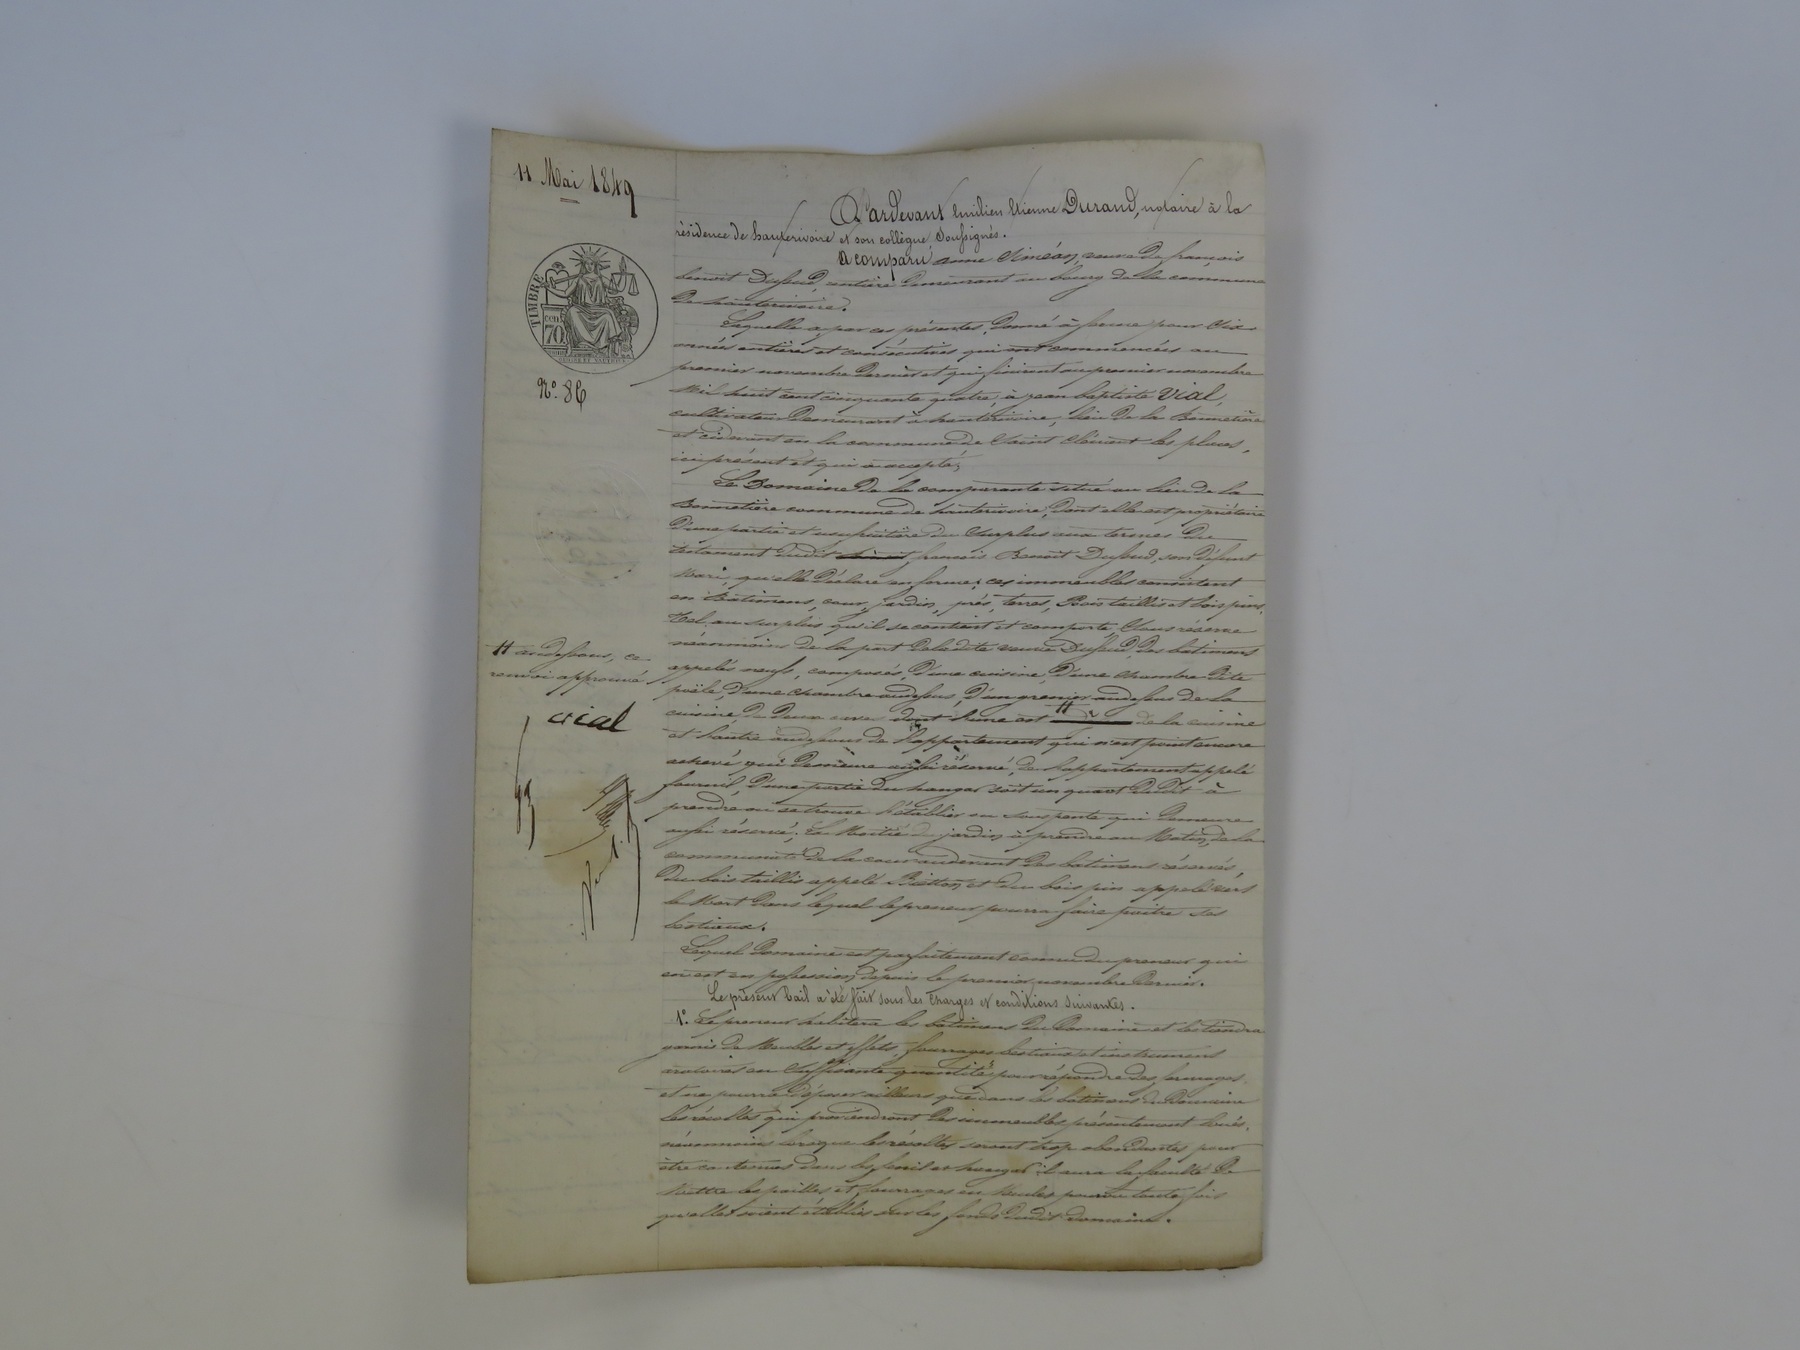 11 Mai 1849
TIMBRE
cen
70
N.º 86
Pardevant Emilien Etienne Durand, notaire à la
résidence de hauterivoire et son collègue Soussignés.
A comparu anne Siméon, veuve de françois
benoit Dussud, rentière demeurant au bourg de la commune
de hauterivoire.
Lequelle a, par ces présentes, donné à ferme pour Six
années entières et consécutives qui ont commencées au
premier novembre dernier et qui finiront au premier novembre
Mil huit cent cinquante quatre, à jean baptiste Vial,
cultivateur demeurant à hauterivoire, lieu de la Bonnetière
et cidevant en la commune de Saint Clément les places,
ici présent et qui a accepté;
Le Domaine de la comparante situé au lieu de la
Bonnetière commune de hauterivoire, dont elle est propriétaire
d'une partie et usufruitière du Surplus aux termes du
testament dudit françois Benoit Dussud, son défunt
Mari, qu'elle déclare en forme; ces immeubles consistent
en Batimens, cour, jardin, prés, terres, Bois taillis et bois pins,
Tel au surplus qu'il se contient et comporte Sans réserve
néanmoins de la part de ladite veuve Dussud, des bâtimens
appelés neufs, composés, d'une cuisine, d'une chambre dite
poële, d'une chambre audessus, d'un grenier audessus de la
cuisine, de deux caves dont l'une est # de la cuisine
et l'autre audessous de l'appartement qui n'est point encore
achevé qui demeure aussi réservé, de l'appartement appelé
fournil, d'une partie du hangar soit un quart dudit à
prendre ou se trouve l'établie ou suspente qui demeure
aussi réservé; La Moitié du jardin à prendre au Matin, de la
communauté de la cour audevant des bâtimens réservés,
du bois taillis appelé et du bois pin appelé vers
le Mort dans lequel le preneur pourra faire paitre ses
bestiaux.
Lequel Domaine est parfaitement connu du preneur qui
en est en possession depuis le premier novembre dernier.
Le présent bail a été fait sous les charges et conditions suivantes.
1º. Le preneur habitera les bâtimens du Domaine et les tiendra
garnis de Meubles et effets, fourrages bestiaux et instrument
aratoires en Suffisante quantité pour répondre des fermages,
et ne pourra déposer ailleurs que dans les bâtimens du Domaine
les récoltes qui proviendront des immeubles présentement loués,
néanmoins lorsque les récoltes seront trop abondantes pour
être contenues dans les fenil et hangar il aura la faculté de
Mettre les pailles et fourrages en Meules pourvu toute fois
qu'elles soient établies sur les fonds dudit domaine.
# audessous, ce
renvoi approuvé
vial